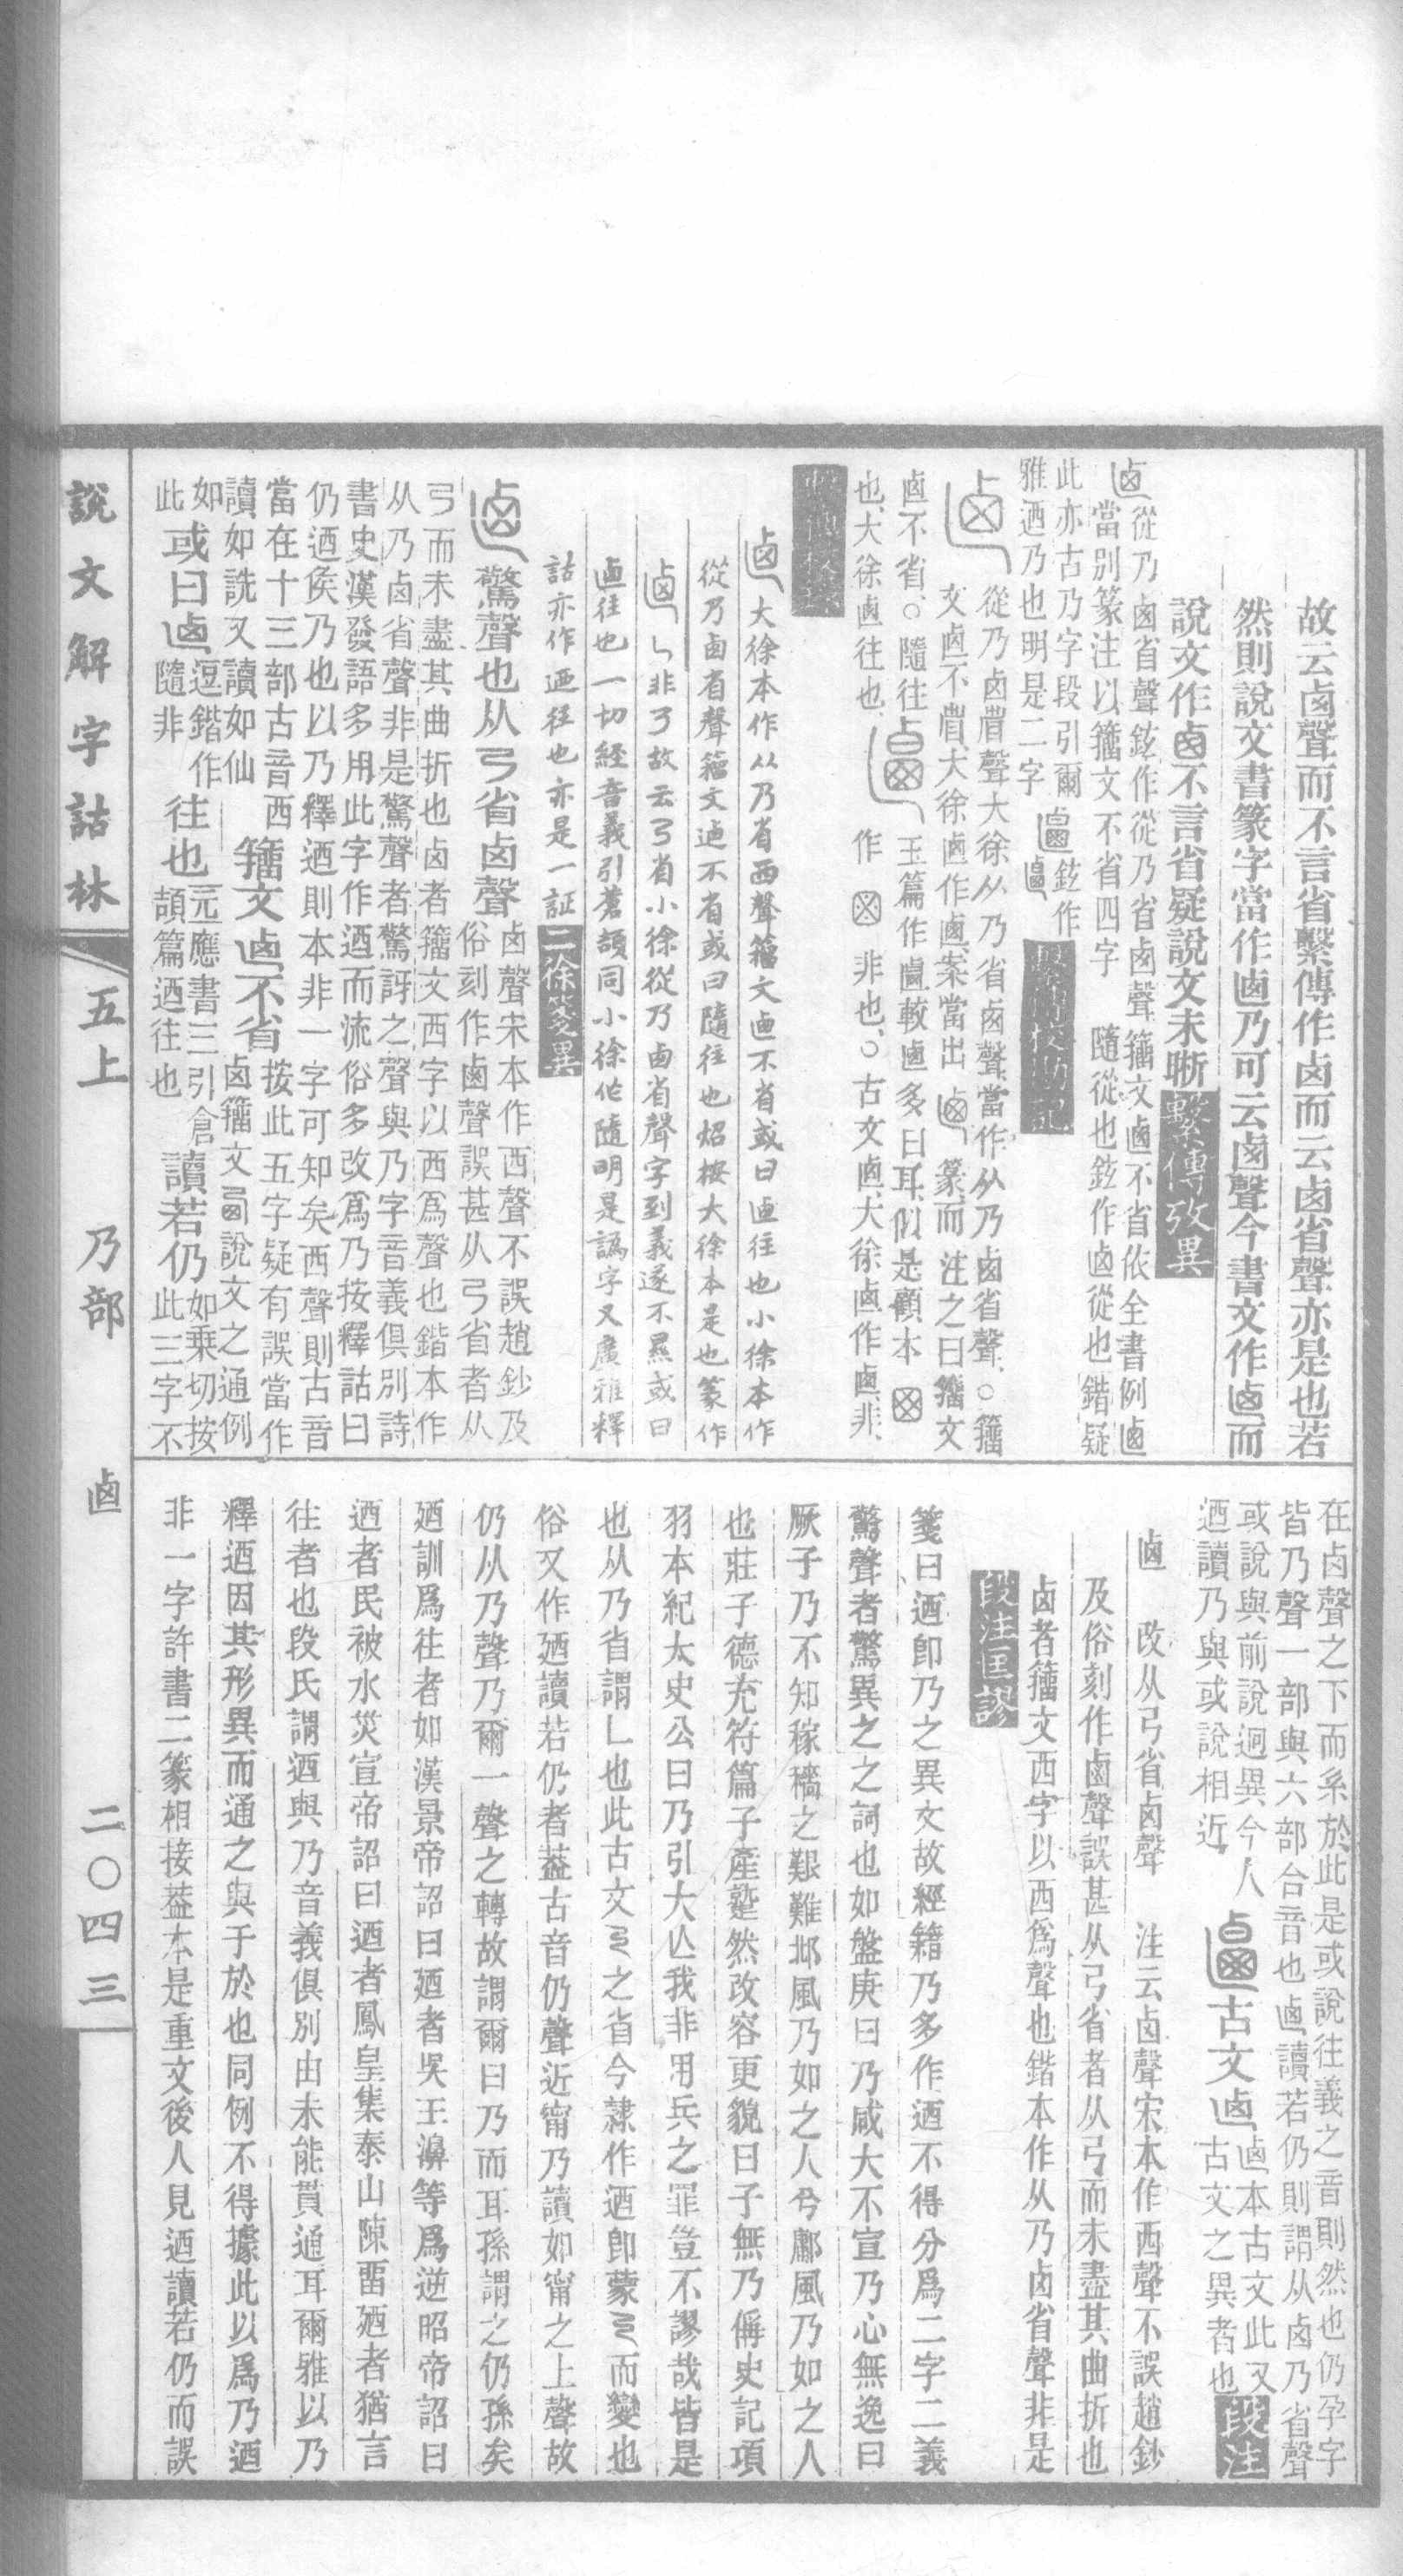 故云卤聲而不言省繫傳作卤而云卤省聲亦是也若
然則說文書篆字當作鹵乃可云卤聲今書文作𠧟而
說文作卤不言省疑說文未晰繫傳攷異
從乃卤省聲鉉作從乃省卤聲籀文𠧟不省依全書例𠧟
當別篆注以籀文不省四字 隨從也鉉作𠧟從也鍇疑
此亦古乃字段引爾
雅迺乃也明是二字
鉉作
繫傳校勘記
從乃卤省聲大徐从乃省卤聲當作从乃卤省聲○籀
文𠧟不省大徐𠧟作𠧟案當出 篆而注之曰籀文
𠧟不省○隨往 玉篇作𠧟較𠧟多曰耳似是顧本
作 非也○古文𠧟大徐𠧟作𠧟非
也大徐𠧟往也
大徐本作从乃省西聲籀文𠧟不省或曰𠧟往也小徐本作
從乃卤省聲籀文𠧟不省或曰隨往也炤按大徐本是也篆作
非弓故云弓省小徐從乃卤省聲字到義遂不㬎或曰
𠧟往也一切經音義引蒼頡同小徐作隨明是譌字又廣雅釋
詁亦作迺往也亦是一証二徐箋異
驚聲也从弓省卤聲卤聲宋本作西聲不誤趙鈔及
俗刻作鹵聲誤甚从弓省者从
弓而未盡其曲折也卤者籀文西字以西爲聲也鍇本作
从乃卤省聲非是驚聲者驚訝之聲與乃字音義俱別詩
書史漢發語多用此字作迺而流俗多改爲乃按釋詁曰
仍迺矦乃也以乃釋迺則本非一字可知矣西聲則古音
當在十三部古音西
讀如詵又讀如仙籀文𠧟不省按此五字疑有誤當作
卤籀文 說文之通例
如此或曰𠧟逗鍇作
隨非往也元應書三引倉
頡篇迺往也讀若仍如乗切按
此三字不
在卤聲之下而系於此是或說往義之音則然也仍孕字
皆乃聲一部與六部合音也𠧟讀若仍則謂从卤乃省聲
或說與前說迥異今人
迺讀乃與或說相近古文𠧟𠧟本古文此又
古文之異者也段注
𠧟 改从弓省卤聲 注云卤聲宋本作西聲不誤趙鈔
及俗刻作鹵聲誤甚从弓省者从弓而未盡其曲折也
卤者籀文西字以西爲聲也鍇本作从乃卤省聲非是
段注匡謬
箋曰迺卽乃之異文故經籍乃多作迺不得分爲二字二義
驚聲者驚異之之詞也如盤庚曰乃咸大不宣乃心無逸曰
厥子乃不知稼穡之艱難邶風乃如之人兮鄘風乃如之人
也莊子德充符篇子產蹵然改容更貌曰子無乃偁史記項
羽本紀太史公曰乃引天亡我非用兵之罪豈不謬哉皆是
也从乃省謂乚也此古文 之省今隸作迺卽蒙 而變也
俗又作廼讀若仍者葢古音仍聲近甯乃讀如甯之上聲故
仍从乃聲乃爾一聲之轉故謂爾曰乃而耳孫謂之仍孫矣
廼訓爲往者如漢景帝詔曰廼者吳王濞等爲逆昭帝詔曰
迺者民被水災宣帝詔曰迺者鳳皇集泰山陳畱廼者猶言
往者也段氏謂迺與乃音義俱別由未能貫通耳爾雅以乃
釋迺因其形異而通之與于於也同例不得據此以爲乃迺
非一字許書二篆相接葢本是重文後人見迺讀若仍而誤
說文解字詁林 五上 乃部 𠧟 二〇四三